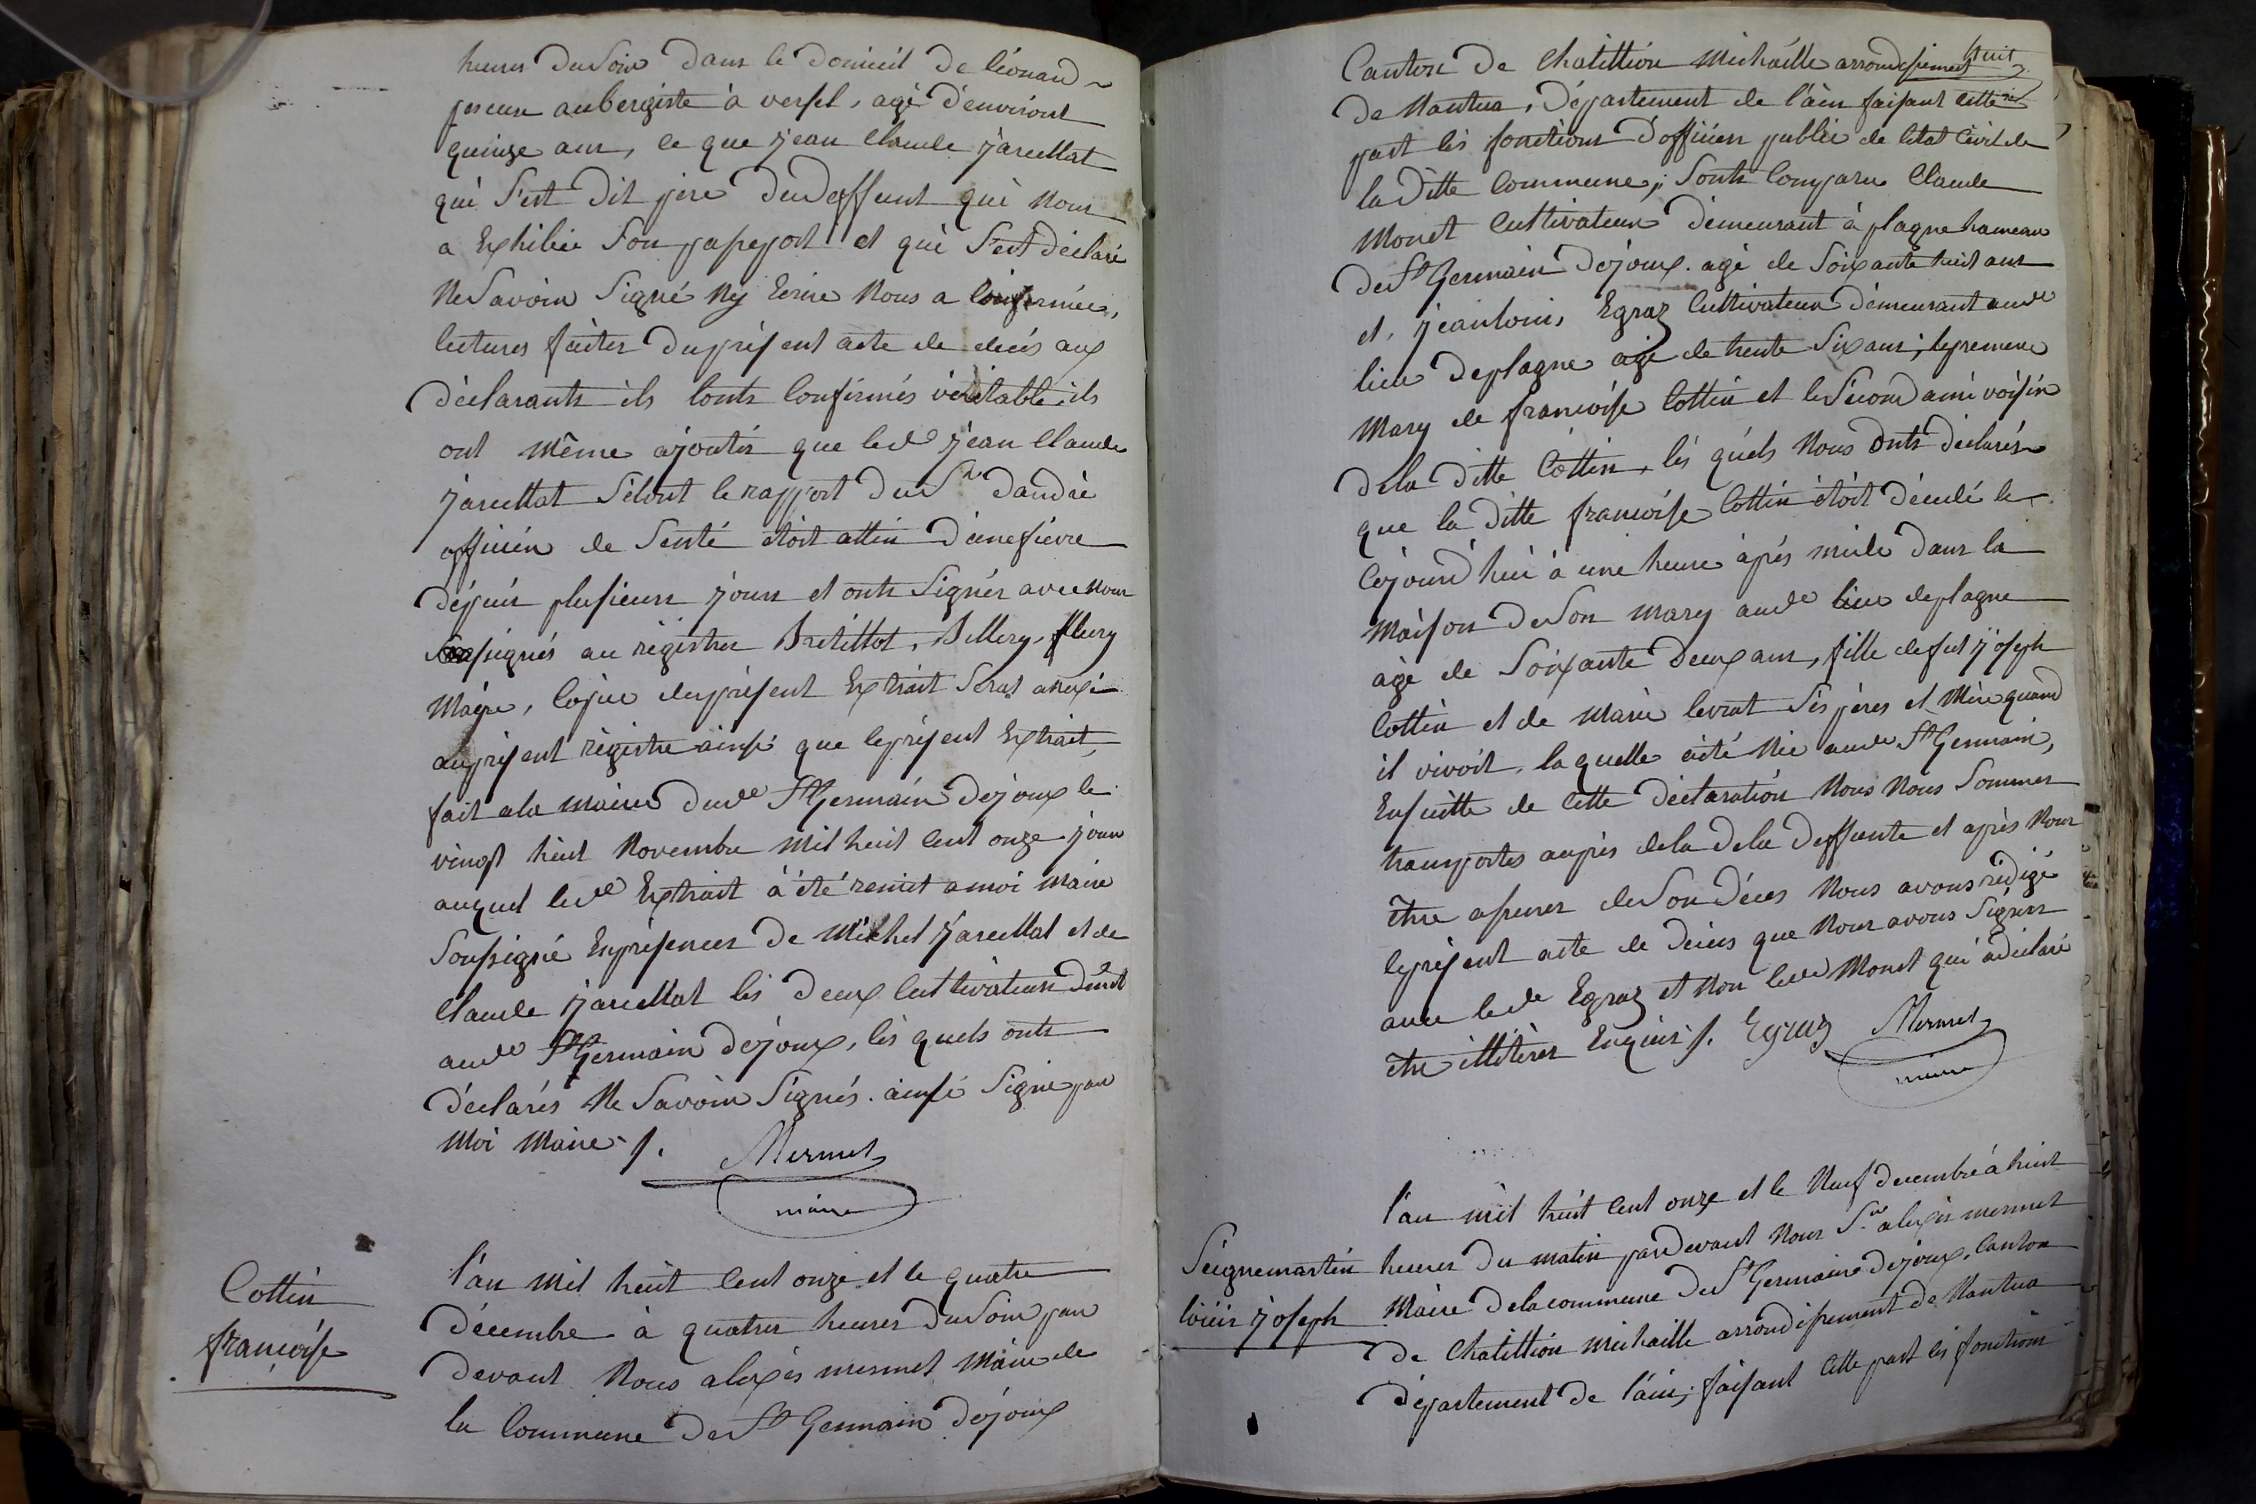 heures du Soir dans le domicil de léonard
peseux aubergiste à versel, agé d'environt
quinze ans, ce que jean Claude jarcellat
qui S'est dit père du deffunt qui nous
a Exhibée Son passeport et qui S'est déclaré
Ne Savoir Signé Ny Ecrire Nous a Confirmée,
lectures faites du présent acte de décès aux
déclarants ils l'onts Confirmés véritable, ils
ont même ajoutés que led jean Claude
jarcellat Sélont le rapport du Sr dandré
officién de Senté étoit attin d'une fiévre
dépuis plusieurs jours et onts Signés avec nous
Soussignés au régistres Bretillot, Billery, fleury
Maire, Copie du présent Extrait Serat anexé
au présent régistre ainsi que le présent Extrait,
fait a la mairie dud St Germain dejoux le
vingt huit Novembre mil huit cent onze jour
auquel led Extrait à été remit a moi maire
Soussigné En présences de Michel jarcellat et de
Claude jarcellat les deux Cultivateurs
aud St Germain dejoux, lès quels onts
déclarés Ne Savoir Signés. ainsi Signé par
Moi Maire ·/.
Mermet
maire
Cottin
françoise
l'an mil huit Cent onze et le quatre
décembre à quatres heures du Soir par
devant Nous alexis mermet Maire de
la Commune de St Germain déjoux
huit
Canton de Chatillion Michaille arrondissement
de Nantua, Département de l'ain faisant cette
part lés fonctions d'officier public de létat Civil de
la ditte Commune, Sonts Comparu Claude
Monet Cultivateur demeurant à plagne hameau
de St Germain déjoux. agé de Soixante huit ans
et, jeanlouis Egraz Cultivateur démeurant aud
lieu de plagne agé de trente Six ans, le premier
Mary de françoise Cottin et le Sécond ami voisin
dela ditte Cottin, lés quels Nous onts déclarés
que la ditte françoise Cottin étoit décedé le
Cojourd'hui à une heure après midi dans la
maison de Son mary aud lieu de plagne
agé de Soixante deux ans, fille de fut joseph
Cottin et de marie levrat Sés pères et Mère quand
il vivoit, la quelle eité Née aud St Germain,
Ensuitte de Cette déclaration Nous Nous Sommes
transportés auprès de la dela deffunte et après Nous
être assurer de Son décès Nous avons rédigé
le présent acte de décès que Nous avons Signers
avec led Egraz et Non led Monet qui a déclaré
être illitérer Enquis ·/. Egraz Mermet
maire
Seignemartin
loüis joseph
l'an mil huit Cent onze et le Neuf decembre à huit
heures du matin par devant Nous Sr alexis mermet
Maire dela commune de St Germain dejoux. Canton
de Chatillion michaille arrondissement de Nantua
département de l'ain, faisant Cette part lés fonctions